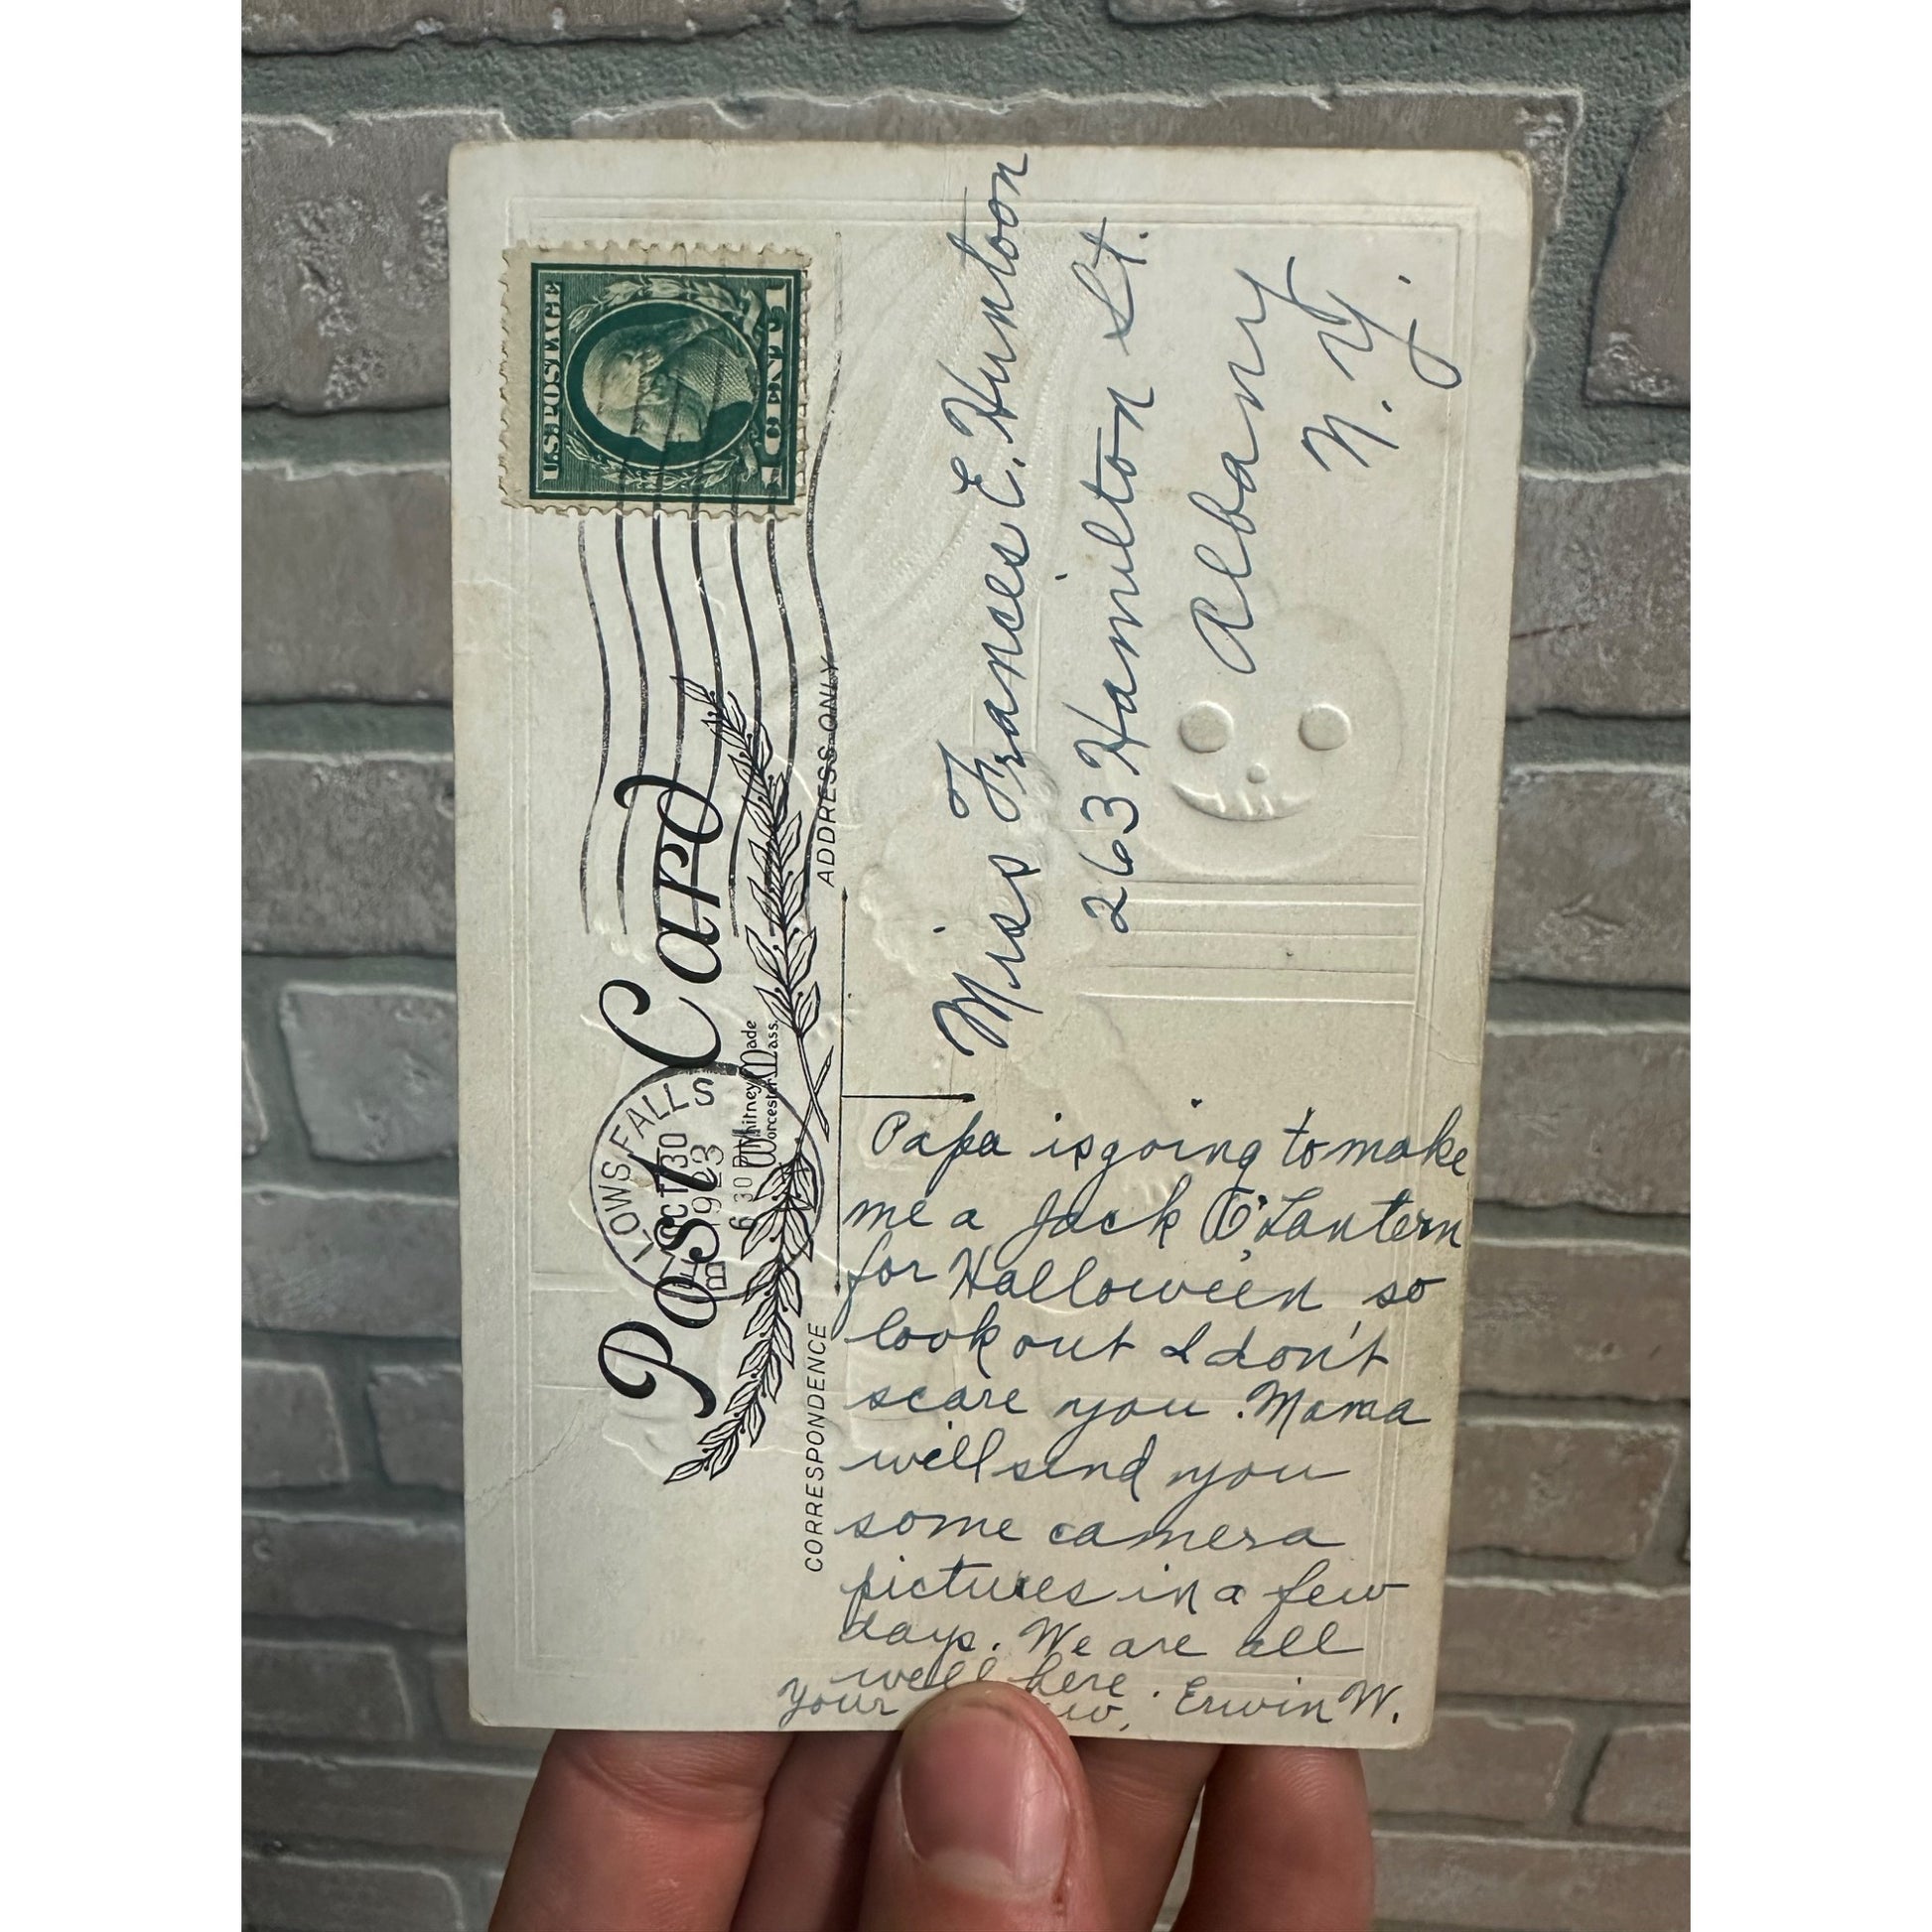 Post Card
Whitney Made
Worcester, Mass.
LOWS FALLS
OCT 30
1923
6 30 P
U.S. POSTAGE
1 CENT 1
CORRESPONDENCE
ADDRESS ONLY
Miss Frances E. Huntoon
263 Hamilton St.
Albany
N.Y.
Papa is going to make
me a Jack O'Lantern
for Hallowe'en so
look out I don't
scare you. Mama
will send you
some camera
pictures in a few
days. We are all
well here.
Your Erwin W.